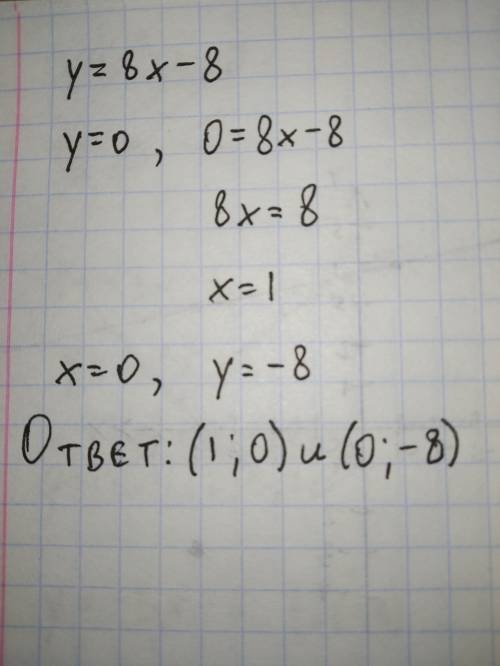 y = 8x - 8
y = 0 , 0 = 8x - 8
8x = 8
x = 1
x = 0 , y = -8
Ответ: (1 ; 0) и (0 ; -8)